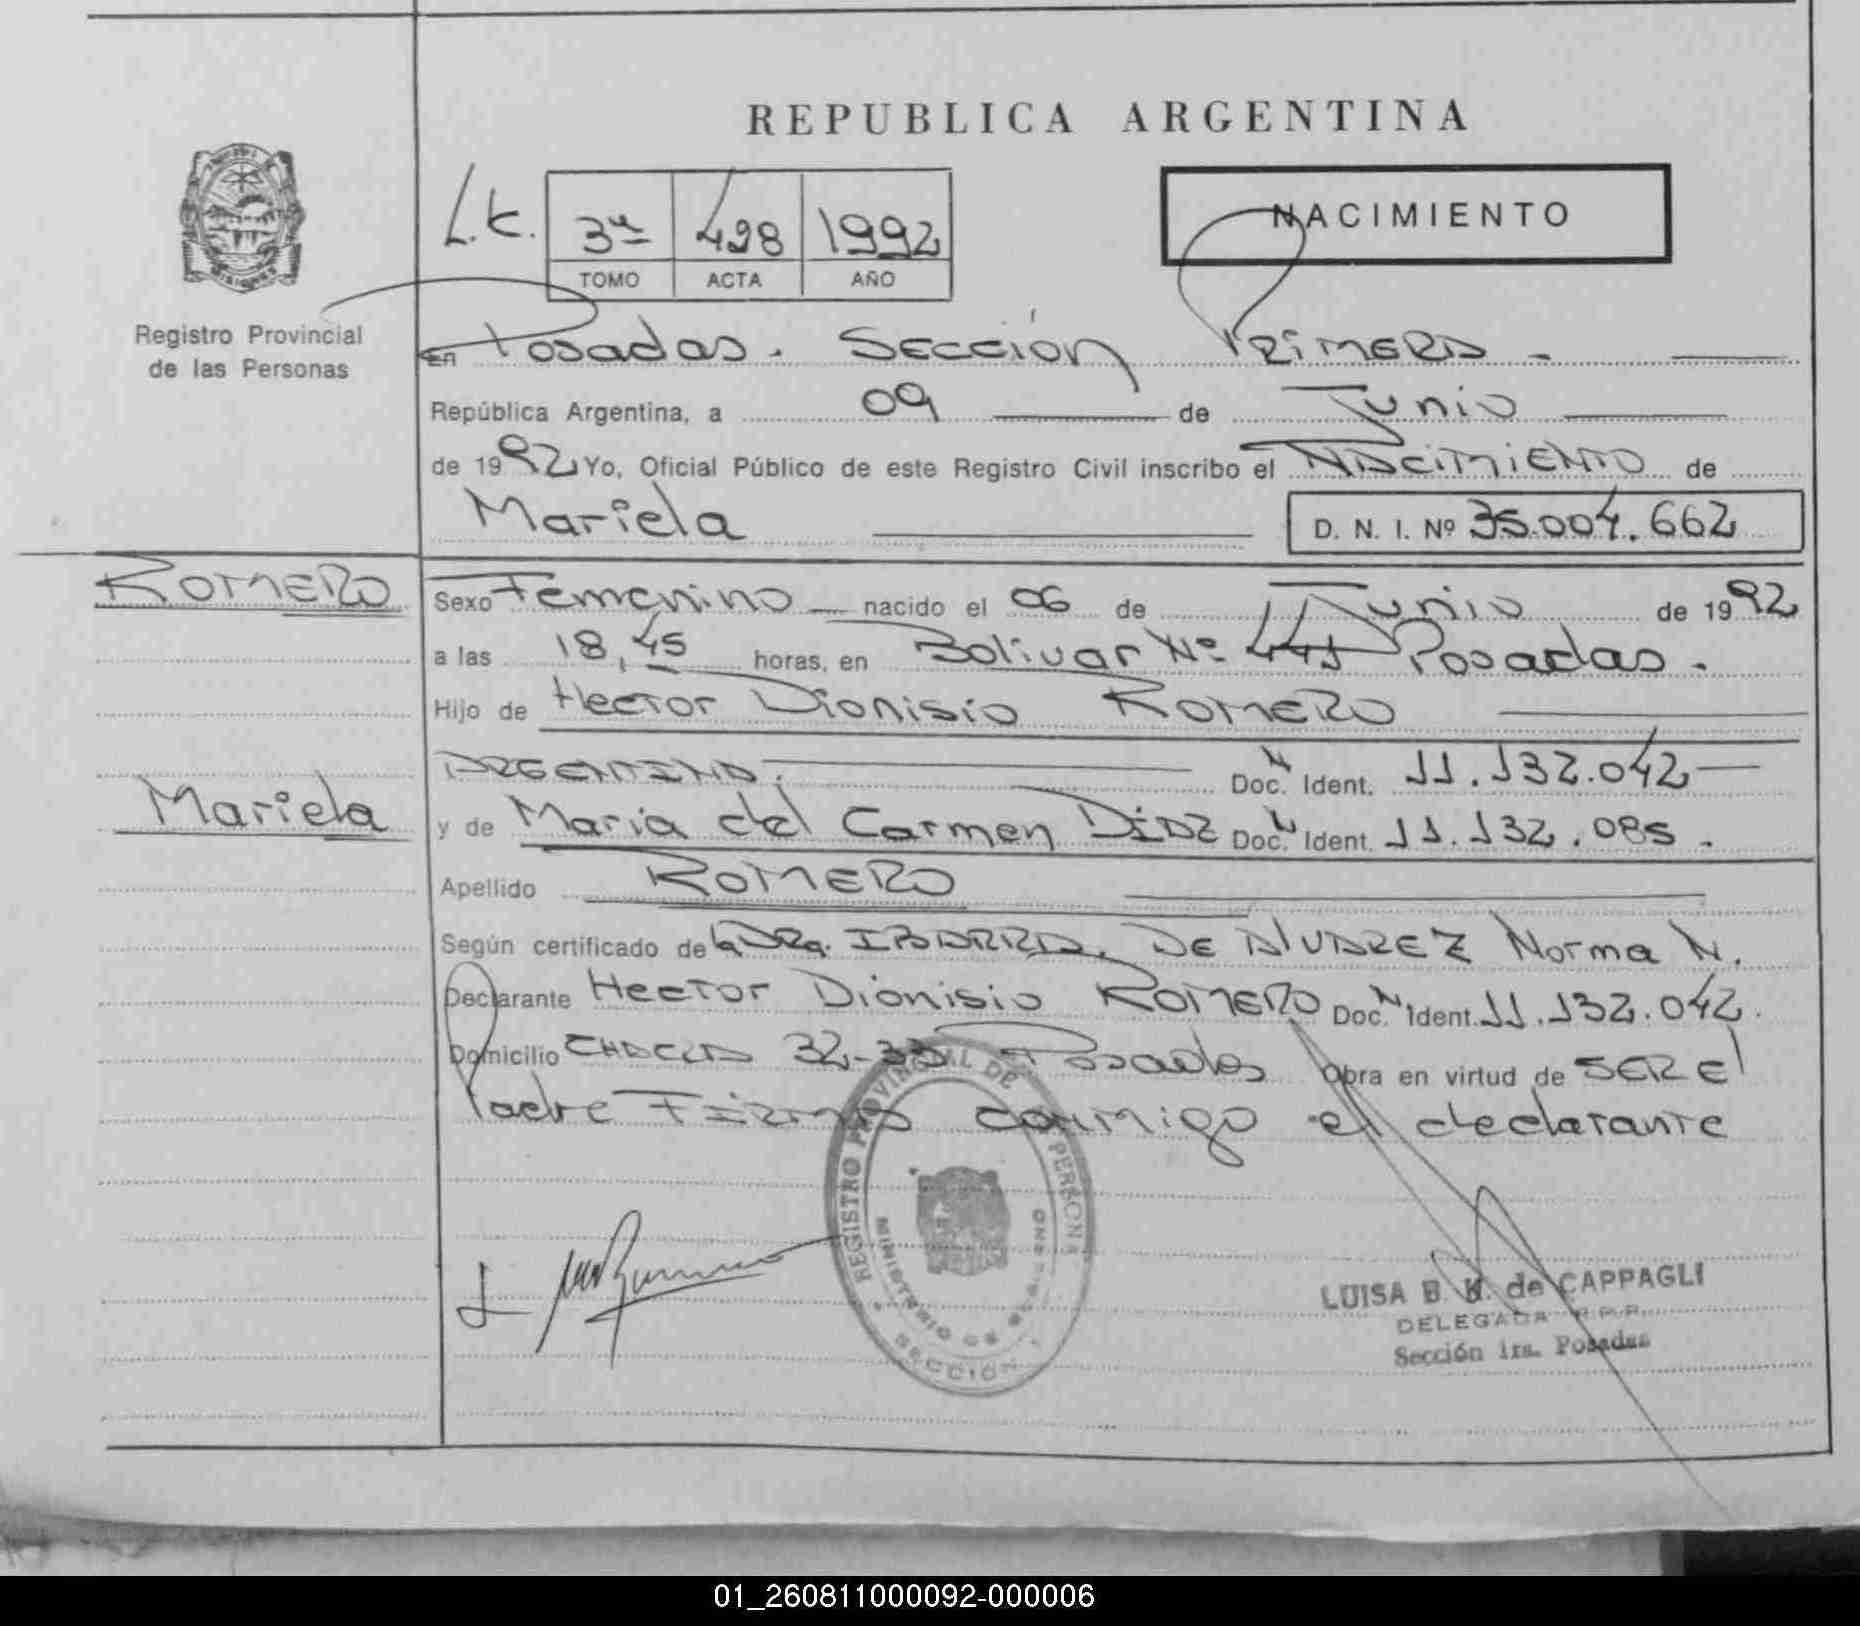 REPUBLICA ARGENTINA
Registro Provincial
de las Personas
L.K.
3º 498 1992
TOMO ACTA AÑO
NACIMIENTO
En Posadas. Sección Primera -
República Argentina, a 09 de Junio
de 1992 Yo, Oficial Público de este Registro Civil inscribo el NACIMIENTO de
Mariela D. N. I. Nº 35.004.662
ROMERO
Sexo Femenino nacido el 06 de Junio de 1992
a las 18,45 horas, en Bolivar Nº 441 Posadas.
Hijo de Hector Dionisio ROMERO
ARGENTINA. Doc. N Ident. 11.132.042
Mariela
y de Maria del Carmen DiAZ Doc. N Ident. 11.132.085.
Apellido ROMERO
Según certificado de la DRa. IBARRA, DE ALVAREZ Norma N.
Declarante Hector Dionisio ROMERO Doc. N Ident. 11.132.042.
Domicilio CHACRA 32-33 Posadas Obra en virtud de SER El
Padre FIRMA conmigo el declarante
REGISTRO PROVINCIAL DE PERSONA
MINISTERIO DE GOBIERNO
SECCION 1
LUISA B. K. de CAPPAGLI
DELEGADA R.P.P.
Sección 1ra. Posadas
01_260811000092-000006